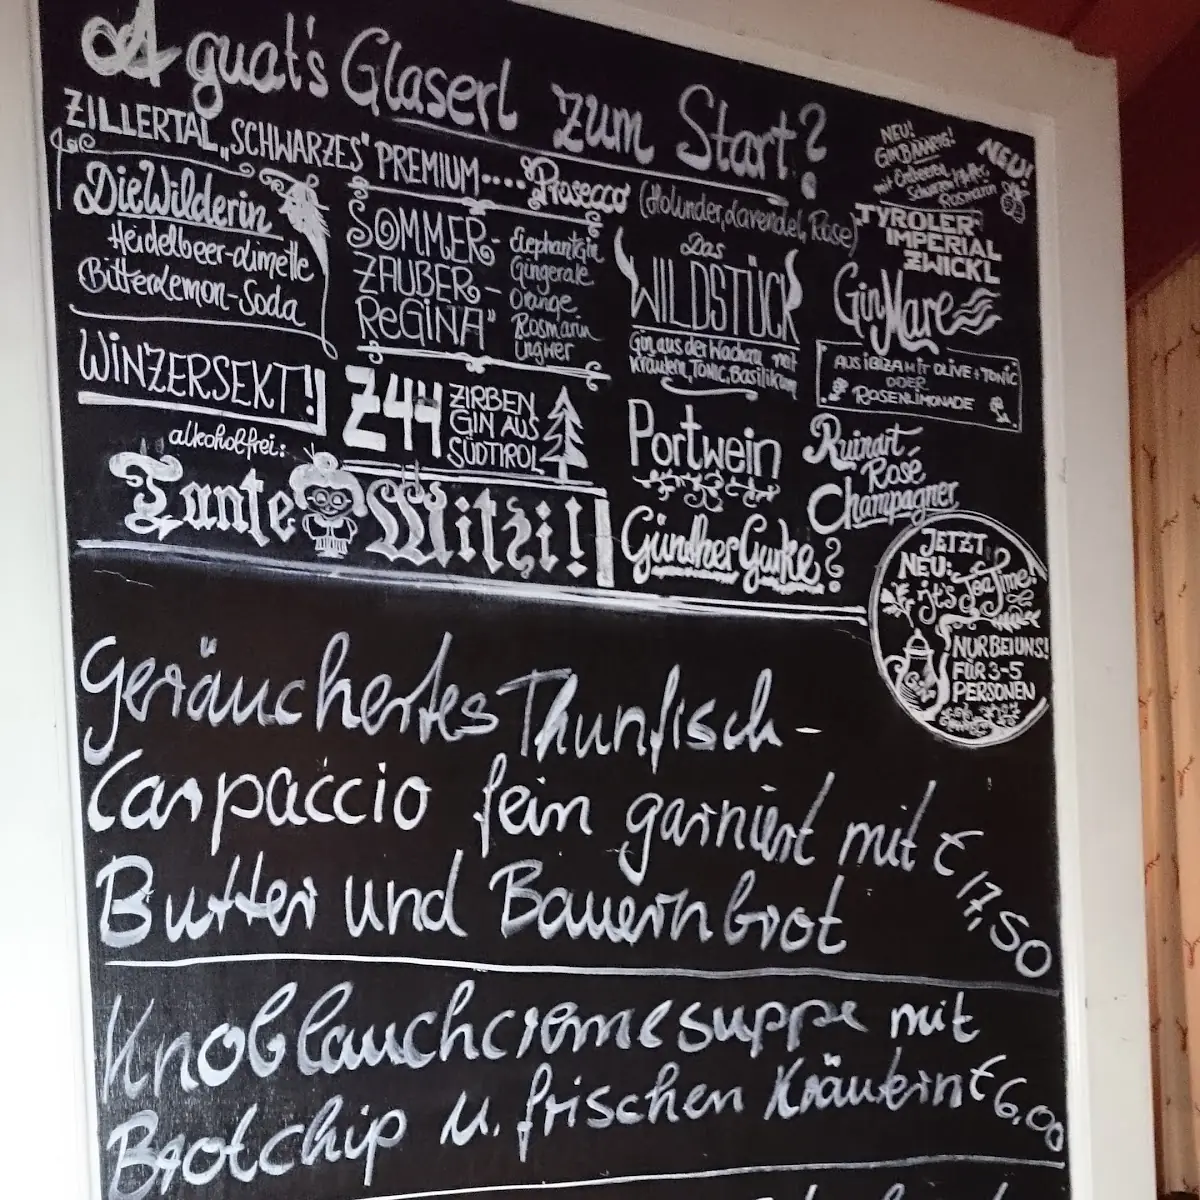 A guat's Glaserl zum Start?
ZILLERTAL „SCHWARZES" PREMIUM.... Prosecco (Holunder, Lavendel, Rose)
Die Wilderin
Heidelbeer-Limette
Bitterlemon-Soda
WINZERSEKT!
SOMMER-
ZAUBER-
REGINA"
Elephant Gin
Gingerale
Orange
Rosmarin
Ingwer
Z44
ZIRBEN
GIN AUS
SÜDTIROL
alkoholfrei:
Tante Mitzi!
Das
WILDSTÜCK
Gin aus der Wachau mit
Kräutern, TONIC, Basilikum
Portwein
Günther Gurke?
NEU!
mit Erdbeeren,
Schwarzer Pfeffer,
Rosmarin
NEU!
TYROLER
IMPERIAL
ZWICKL
Gin Mare
AUS IBIZA MIT OLIVE + TONIC
ODER
ROSENLIMONADE
Ruinart
Rose
Champagner
JETZT
NEU:
it's Tea Time!
NUR BEI UNS!
FÜR 3-5
PERSONEN
Geräuchertes Thunfisch-
Carpaccio fein garniert mit
Butter und Bauernbrot € 17,50
Knoblauchcremesuppe mit
Brotchip u. frischen Kräutern € 6,00